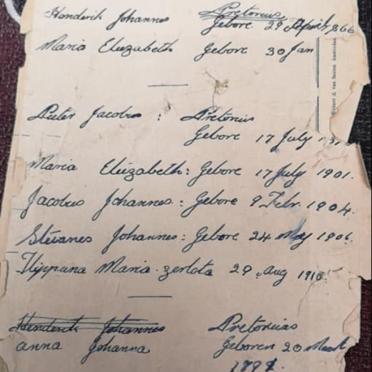 Hendrik Johannes Pretorius
Gebore 29 April 866
Maria Elizabeth Gebore 30 Jan
Pieter Jacobus : Pretorius
Gebore 17 July
Maria Elizabeth: Gebore 17 July 1901.
Jacobus Johannes: Gebore 9 Febr. 1904.
Stevanes Johannes: Gebore 24 May 1906.
Maria 29 Aug
Hendrik Johannes Pretorius
anna Johanna Geboren 20